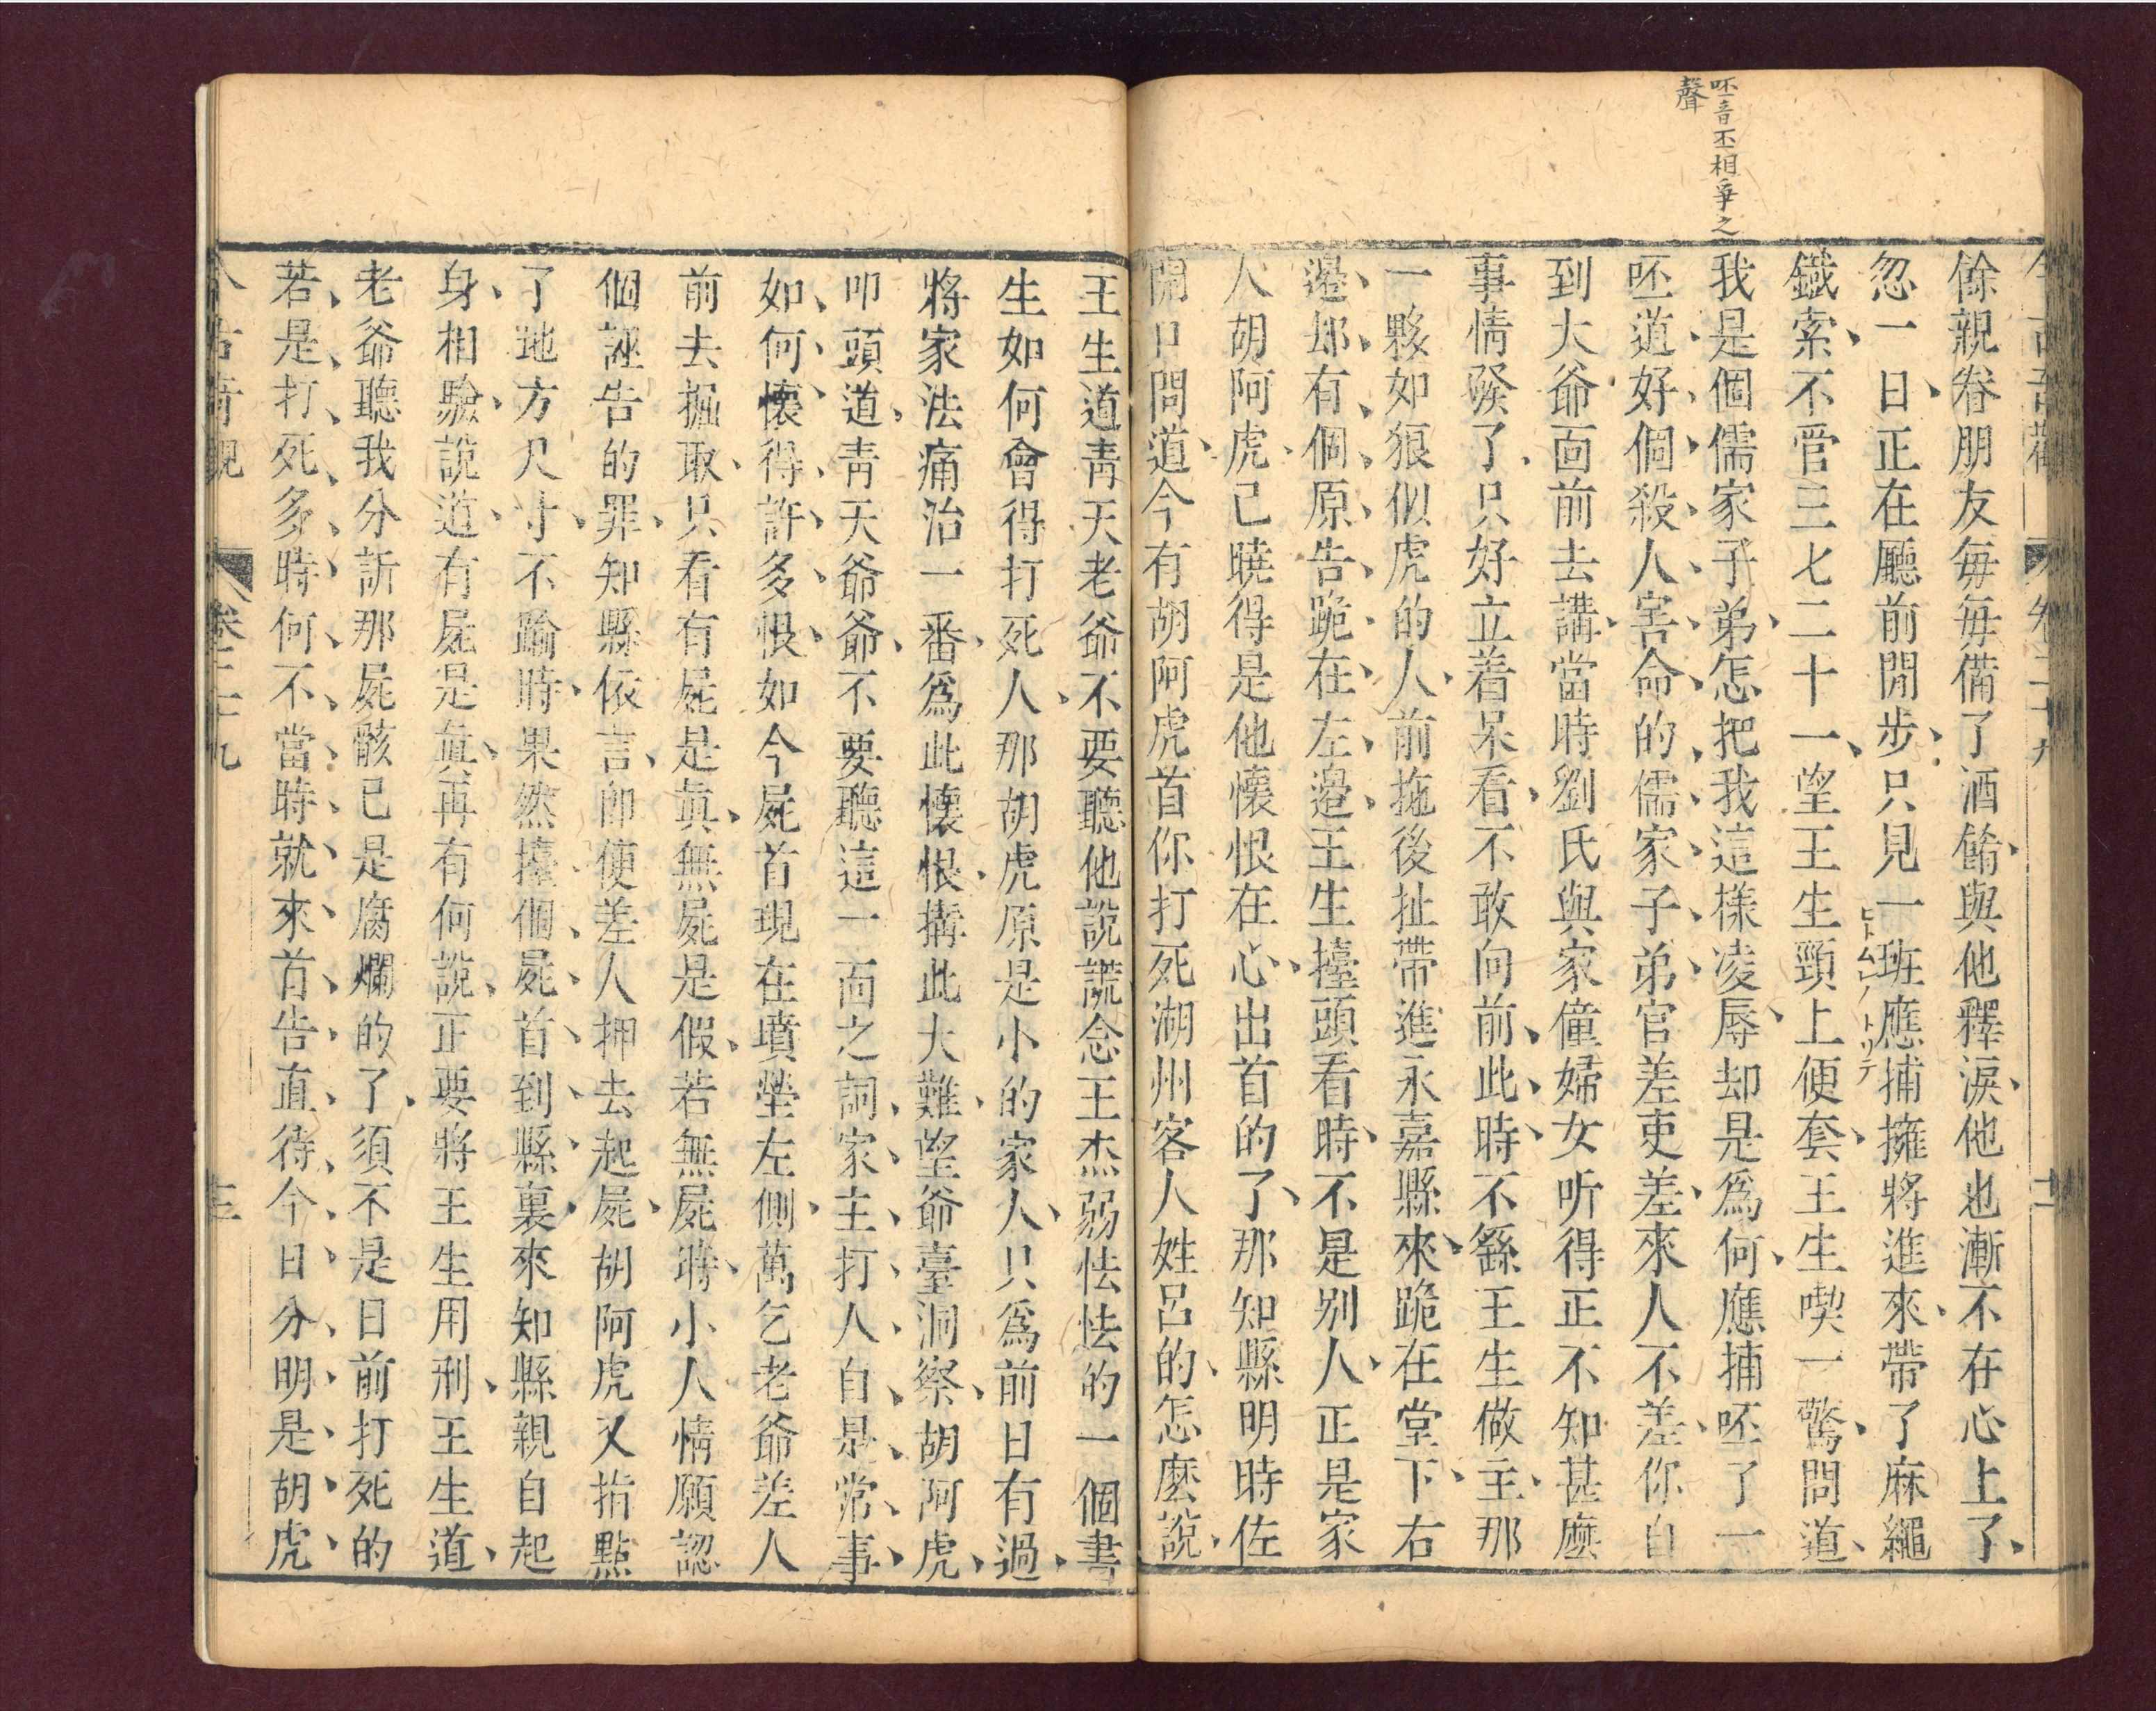 呸音丕相爭之
聲
今古奇觀
卷二十九
十二
餘親眷朋友每每備了酒餚與他釋淚他也漸不在心上了
忽一日正在廳前閒步只見一班應捕擁將進來帶了麻繩
ヒトムレノトリテ
鐵索不管三七二十一望王生頸上便套王生喫一驚問道
我是個儒家子弟怎把我這樣凌辱却是爲何應捕呸了一
呸道好個殺人害命的儒家子弟官差吏差來人不差你自
到大爺面前去講當時劉氏與家僮婦女听得正不知甚麽
事情發了只好立着呆看不敢向前此時不繇王生做主那
一夥如狼似虎的人前拖後扯帶進永嘉縣來跪在堂下右
邉却有個原告跪在左邉王生擡頭看時不是别人正是家
人胡阿虎已曉得是他懷恨在心出首的了那知縣明時佐
開口問道今有胡阿虎首你打死湖州客人姓呂的怎麽說
王生道靑天老爺不要聽他說謊念王杰弱怯怯的一個書
生如何會得打死人那胡虎原是小的家人只爲前日有過
將家法痛治一番爲此懷恨搆此大難望爺臺洞察胡阿虎
叩頭道靑天爺爺不要聽這一面之詞家主打人自是常事
如何懷得許多恨如今屍首現在墳塋左側萬乞老爺差人
前去掘取只看有屍是眞無屍是假若無屍時小人情願認
個誣告的罪知縣依言卽便差人押去起屍胡阿虎又指點
了地方尺寸不踰時果然擡個屍首到縣裏來知縣親自起
身相驗說道有屍是眞再有何說正要將王生用刑王生道
老爺聽我分訴那屍骸已是腐爛的了須不是日前打死的
若是打死多時何不當時就來首告直待今日分明是胡虎
今古奇觀
卷二十九
十三